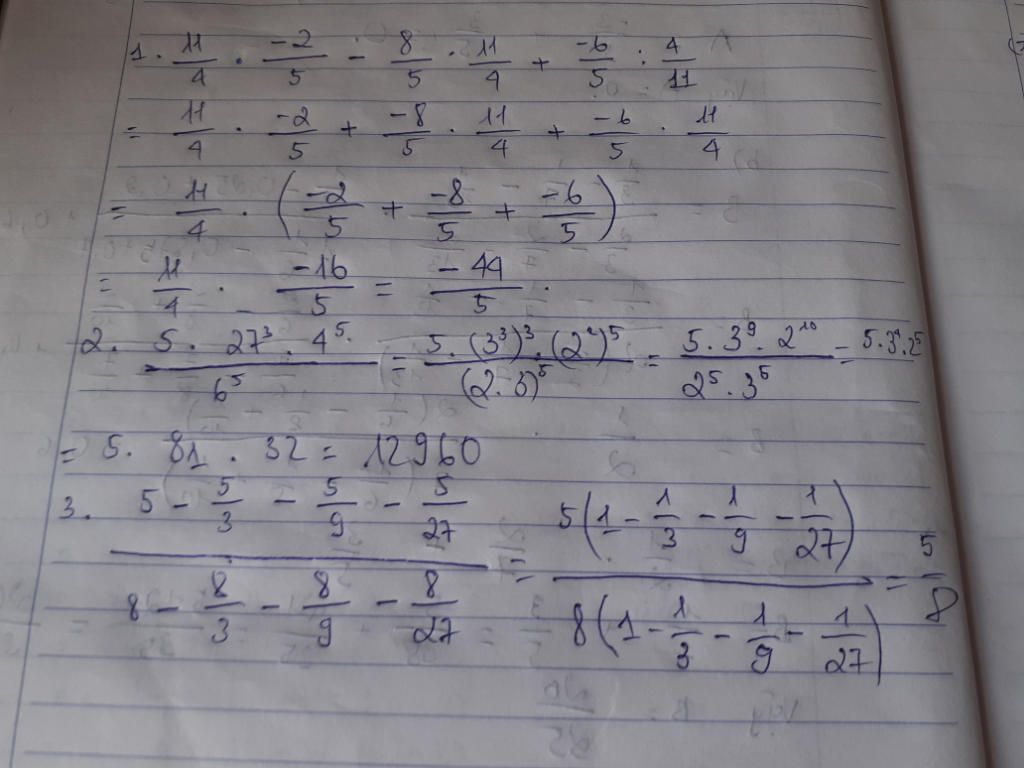 1. 11/4 . -2/5 - 8/5 . 11/4 + -6/5 : 4/11
= 11/4 . -2/5 + -8/5 . 11/4 + -6/5 . 11/4
= 11/4 . (-2/5 + -8/5 + -6/5)
= 11/4 . -16/5 = -44/5 .
2. 5 . 27³ . 4⁵ / 6⁵ = 5 . (3³)³ . (2²)⁵ / (2 . 3)⁵ = 5 . 3⁹ . 2¹⁰ / 2⁵ . 3⁵ = 5 . 3⁴ . 2⁵
= 5 . 81 . 32 = 12960
3. (5 - 5/3 - 5/9 - 5/27) / (8 - 8/3 - 8/9 - 8/27) = 5(1 - 1/3 - 1/9 - 1/27) / 8(1 - 1/3 - 1/9 - 1/27) = 5/8